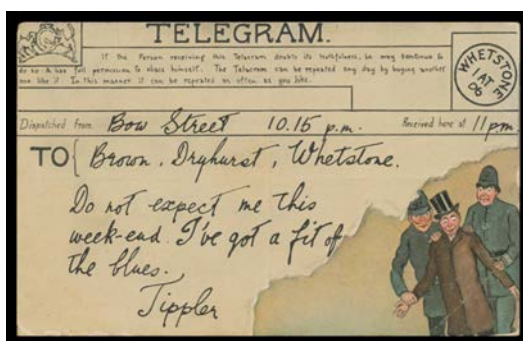 TELEGRAM.
If the Person receiving this Telegram doubts its truthfulness, he may continue to
do so, & has full permission to abuse himself. The Telegram can be repeated any day by buying another
one like it. In this manner it can be repeated as often as you like.
WHETSTONE
AT
06
Dispatched from Bow Street 10.15 p.m. Received here at 11 pm.
TO { Brown, Dryhurst, Whetstone.
Do not expect me this
week-end. I've got a fit of
the blues.
Tippler